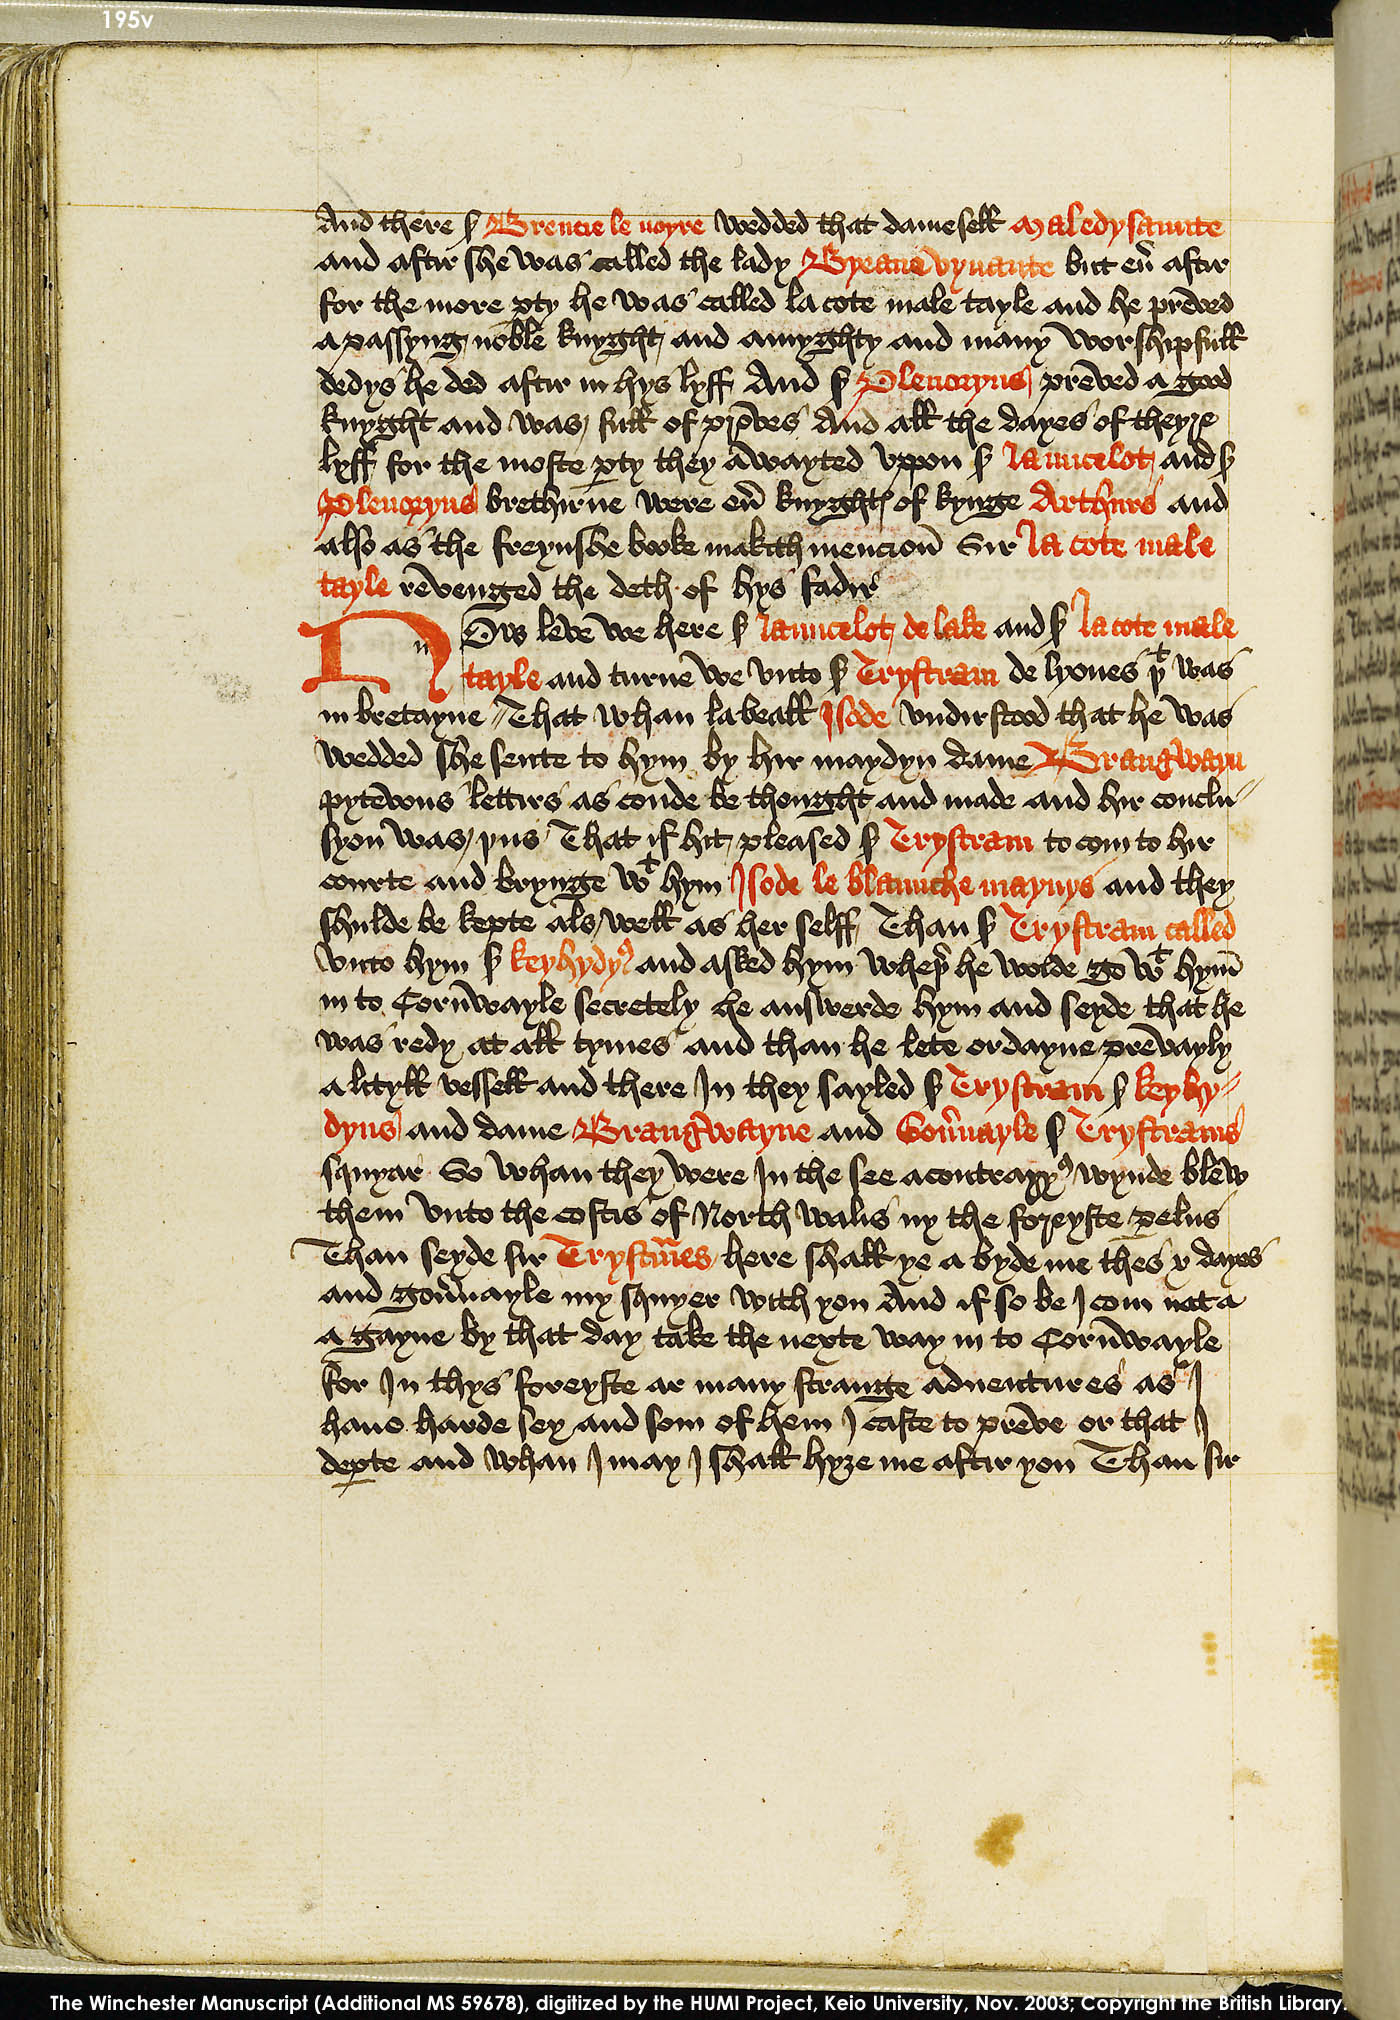 195v
And there sʳ Brenne le noyre wedded that dameselł Maledysaunte
and aftir she was called the lady Byeaue vyuante but eũ aftir
for the more ꝑty he was called la cote male tayle and he preved
a passyng noble knyght and a myghty and many worshipfułł
dedys he ded aftir in hys lyff And sʳ Plenoryus preved a good
knyght and was fułł of proves And ałł the dayes of theyre
lyff for the moste ꝑty they a wayted vppon sʳ launcelot and sʳ
Plenoryus brethirne were eũ knyghtꝭ of kynge Arthurs and
also as the freynshe booke makith mencioũ Sir la cote male
tayle revenged the deth of hys fadir
NOw leve we here sʳ launcelot de lake and sʳ la cote male
tayle and turne we vnto sʳ Trystram de lyones þᵗ was
in bretayne That whan la beałł Isode vndirstood that he was
wedded she sente to hym by hir maydyn dame Brangwayn
pytevous lettirs as coude be thought and made and hir conclu
syon was þus That if hit pleased sʳ Trystram to com to hir
courte and brynge wᵗ hym Isode le blaunche maynys and they
shulde be kepte als wełł as her selff Than sʳ Trystram called
vnto hym sʳ keyhydyꝰ and asked hym wheþ̃ he wolde go wᵗ hym̃
in to Corñwayle secretely he answerde hym and seyde that he
was redy at ałł tymes and than he lete ordayne prevayly
a lityłł vessełł and there In they sayled sʳ Trystram sʳ keyhy
dyus and dame Brangwayne and Goũnayle sʳ Trystrams
squyar So whan they were In the see a contraryꝰ wynde blew
them vnto the costis of North walis ny the foreyste ꝑelus
Than seyde sir Trystm̃es here shałł ye a byde me thes x dayes
and goũnayle my squyer with you And if so be I com nat a
a gayne by that day take the nexte way in to Corñwayle
for In thys foreyste ar many strange adventures as I
haue harde sey and som of hem I caste to preve or that I
deꝑte and whan I may I shałł hyȝe me aftir you Than sir
The Winchester Manuscript (Additional MS 59678), digitized by the HUMI Project, Keio University, Nov. 2003; Copyright the British Library.